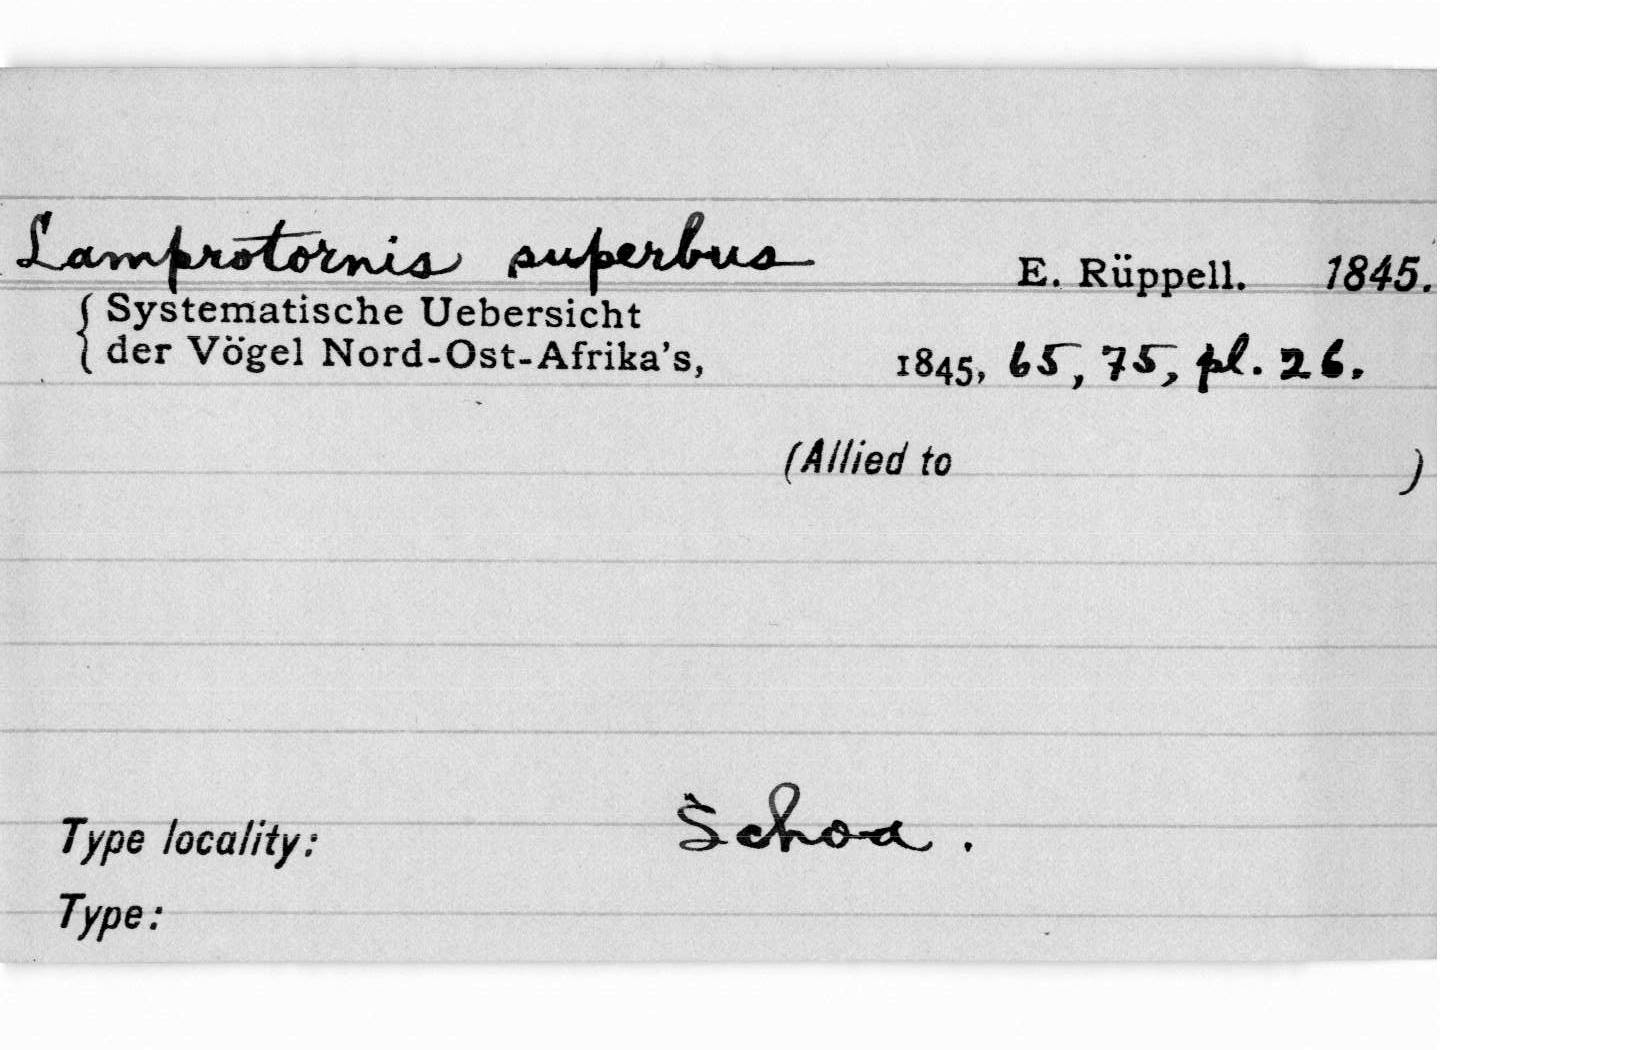 Lamprotornis superbus E. Rüppell. 1845.
{ Systematische Uebersicht
{ der Vögel Nord-Ost-Afrika's, 1845, 65, 75, pl. 26.
(Allied to )
Type locality: Schoa.
Type: